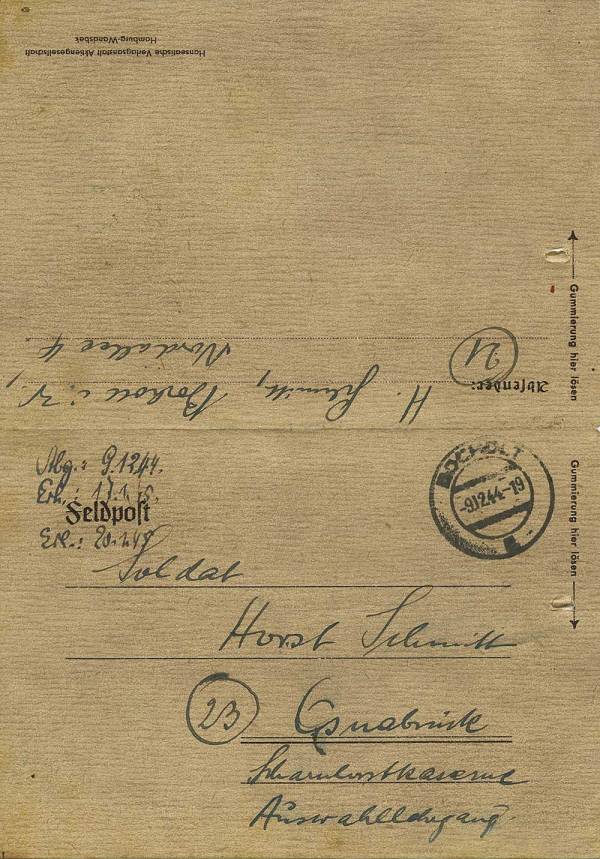 Hanseatische Verlagsanstalt Aktiengesellschaft
Hamburg-Wandsbek
Gummierung hier lösen
Absender:
H. Schmitt, Bocholt i. W.,
21
Nordallee 4
Abg.: 9.12.44.
Erh.: 17.1.45.
Feldpost
Erl.: 20.1.45
BOCHOLT
-9.12.44-19
Gummierung hier lösen
Soldat
Horst Schmitt
23 Osnabrück
Scharnhorstkaserne
Auswahllehrgang.